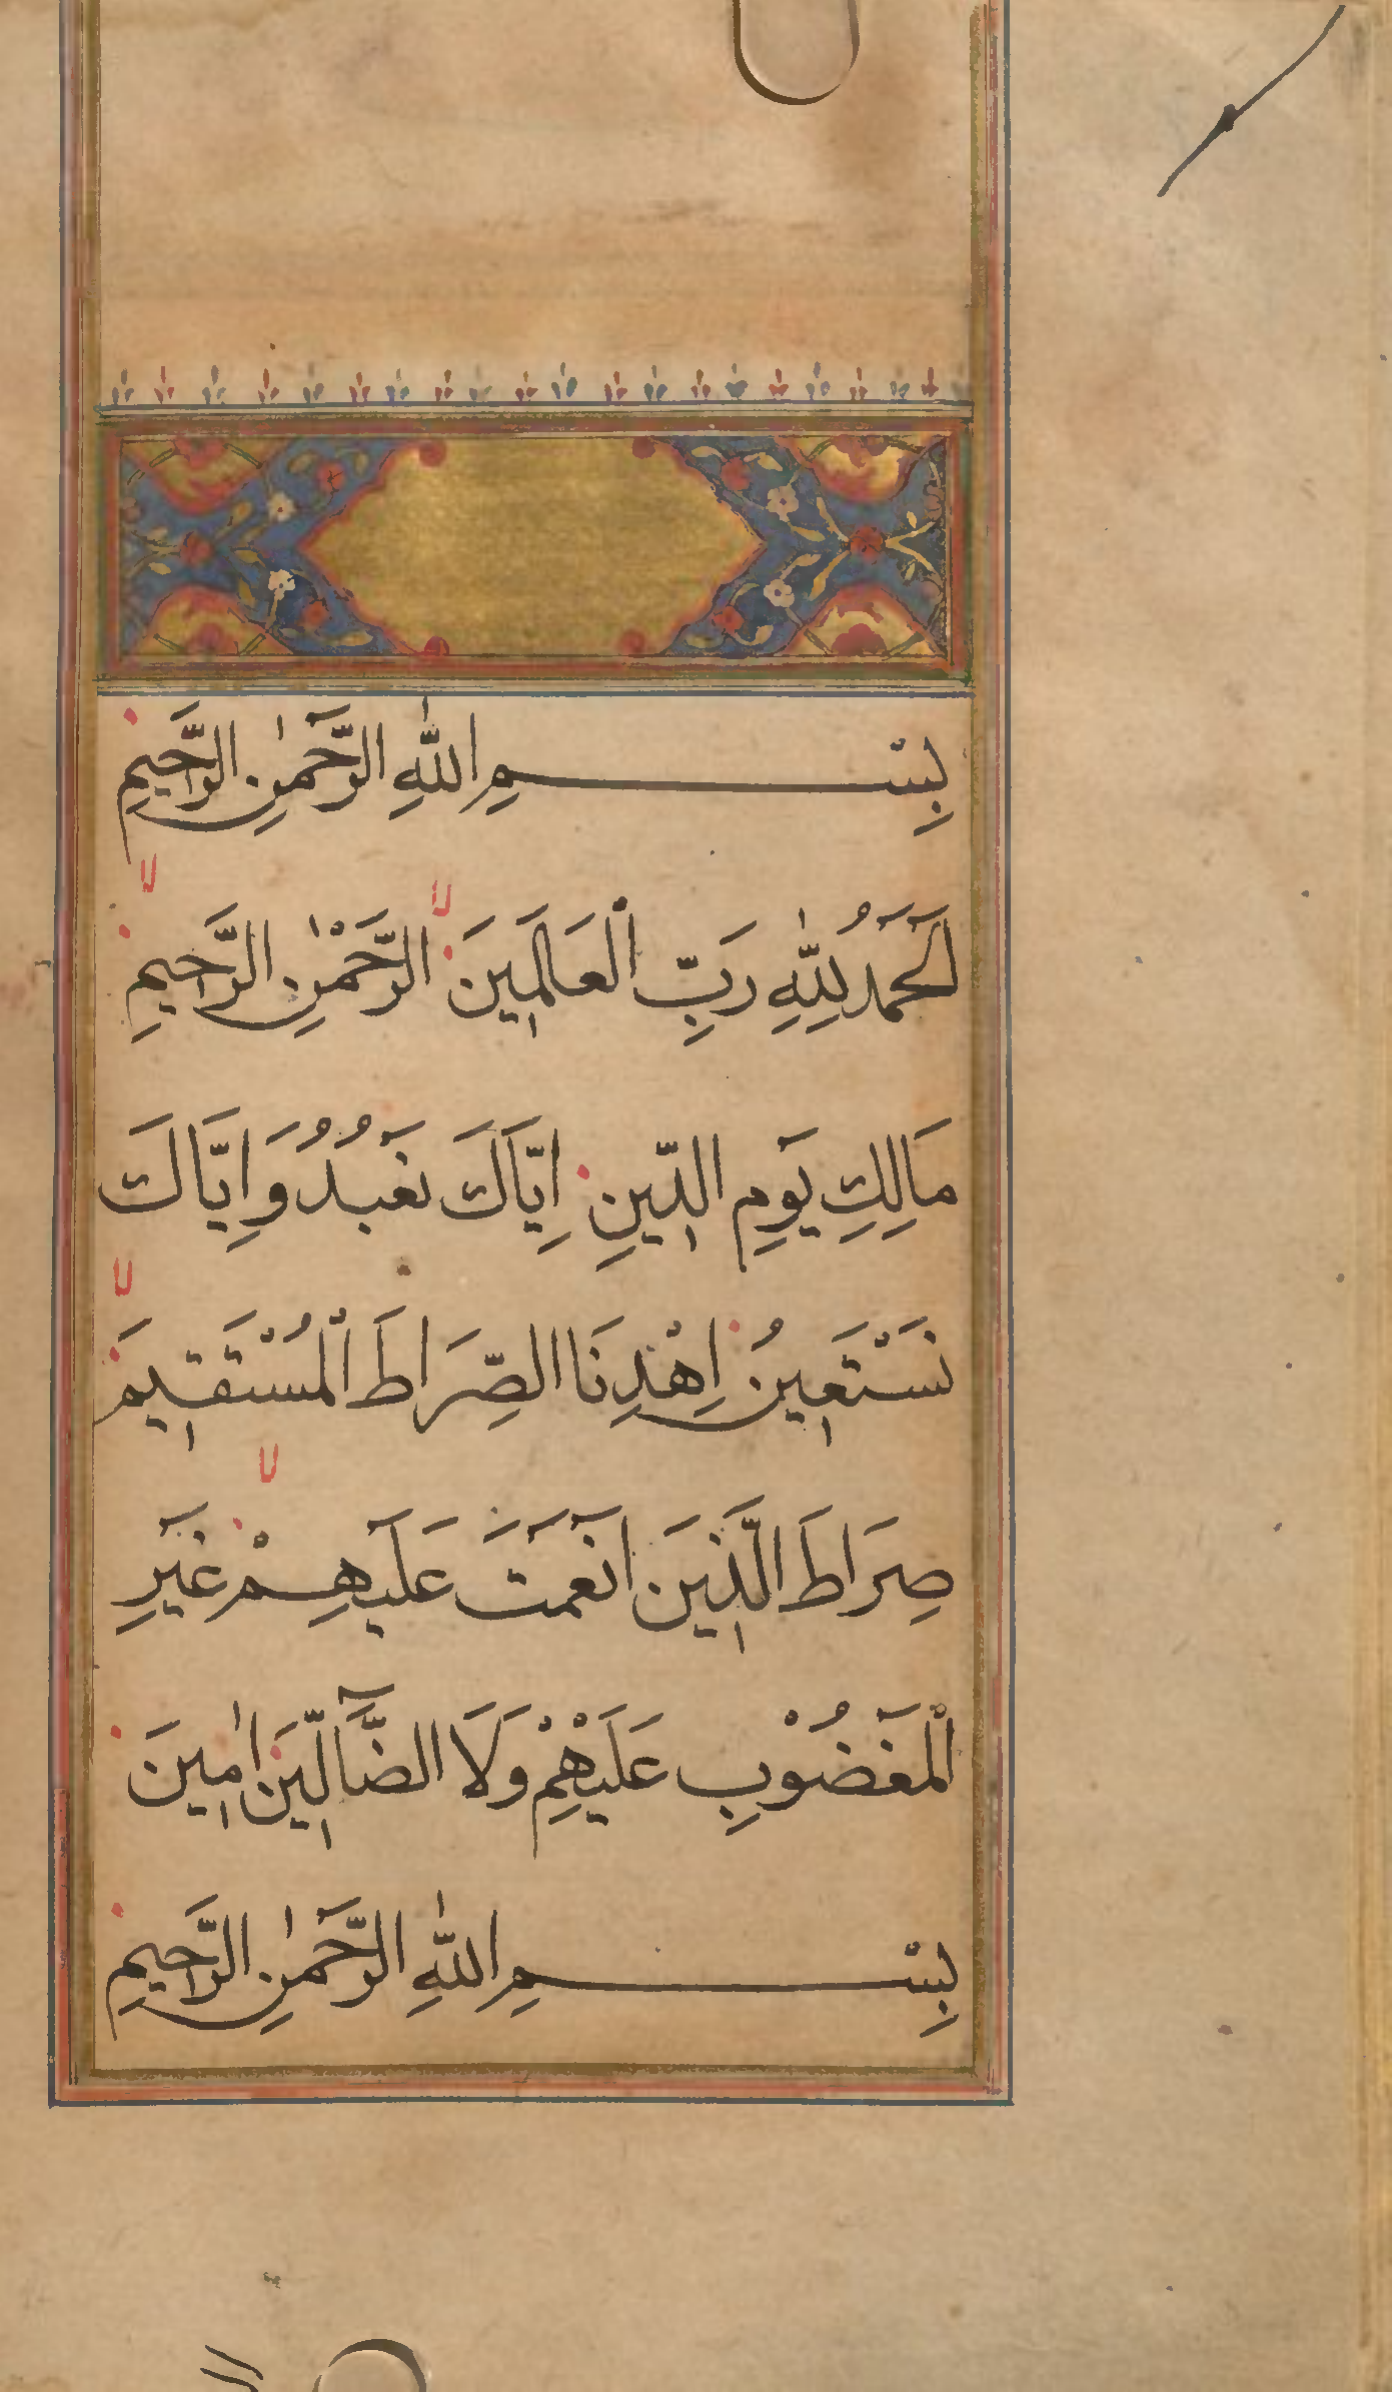 بِسْمِ اللّٰهِ الرَّحْمٰنِ الرَّحِيمِ
لا لا
اَلْحَمْدُ لِلّٰهِ رَبِّ الْعَالَمِينَ الرَّحْمٰنِ الرَّحِيمِ
مَالِكِ يَوْمِ الدِّينِ اِيَّاكَ نَعْبُدُ وَاِيَّاكَ
لا
نَسْتَعِينُ اِهْدِنَا الصِّرَاطَ الْمُسْتَقِيمَ
لا
صِرَاطَ الَّذِينَ اَنْعَمْتَ عَلَيْهِمْ غَيْرِ
الْمَغْضُوْبِ عَلَيْهِمْ وَلَا الضَّآلِّينَ اٰمِينَ
بِسْمِ اللّٰهِ الرَّحْمٰنِ الرَّحِيمِ